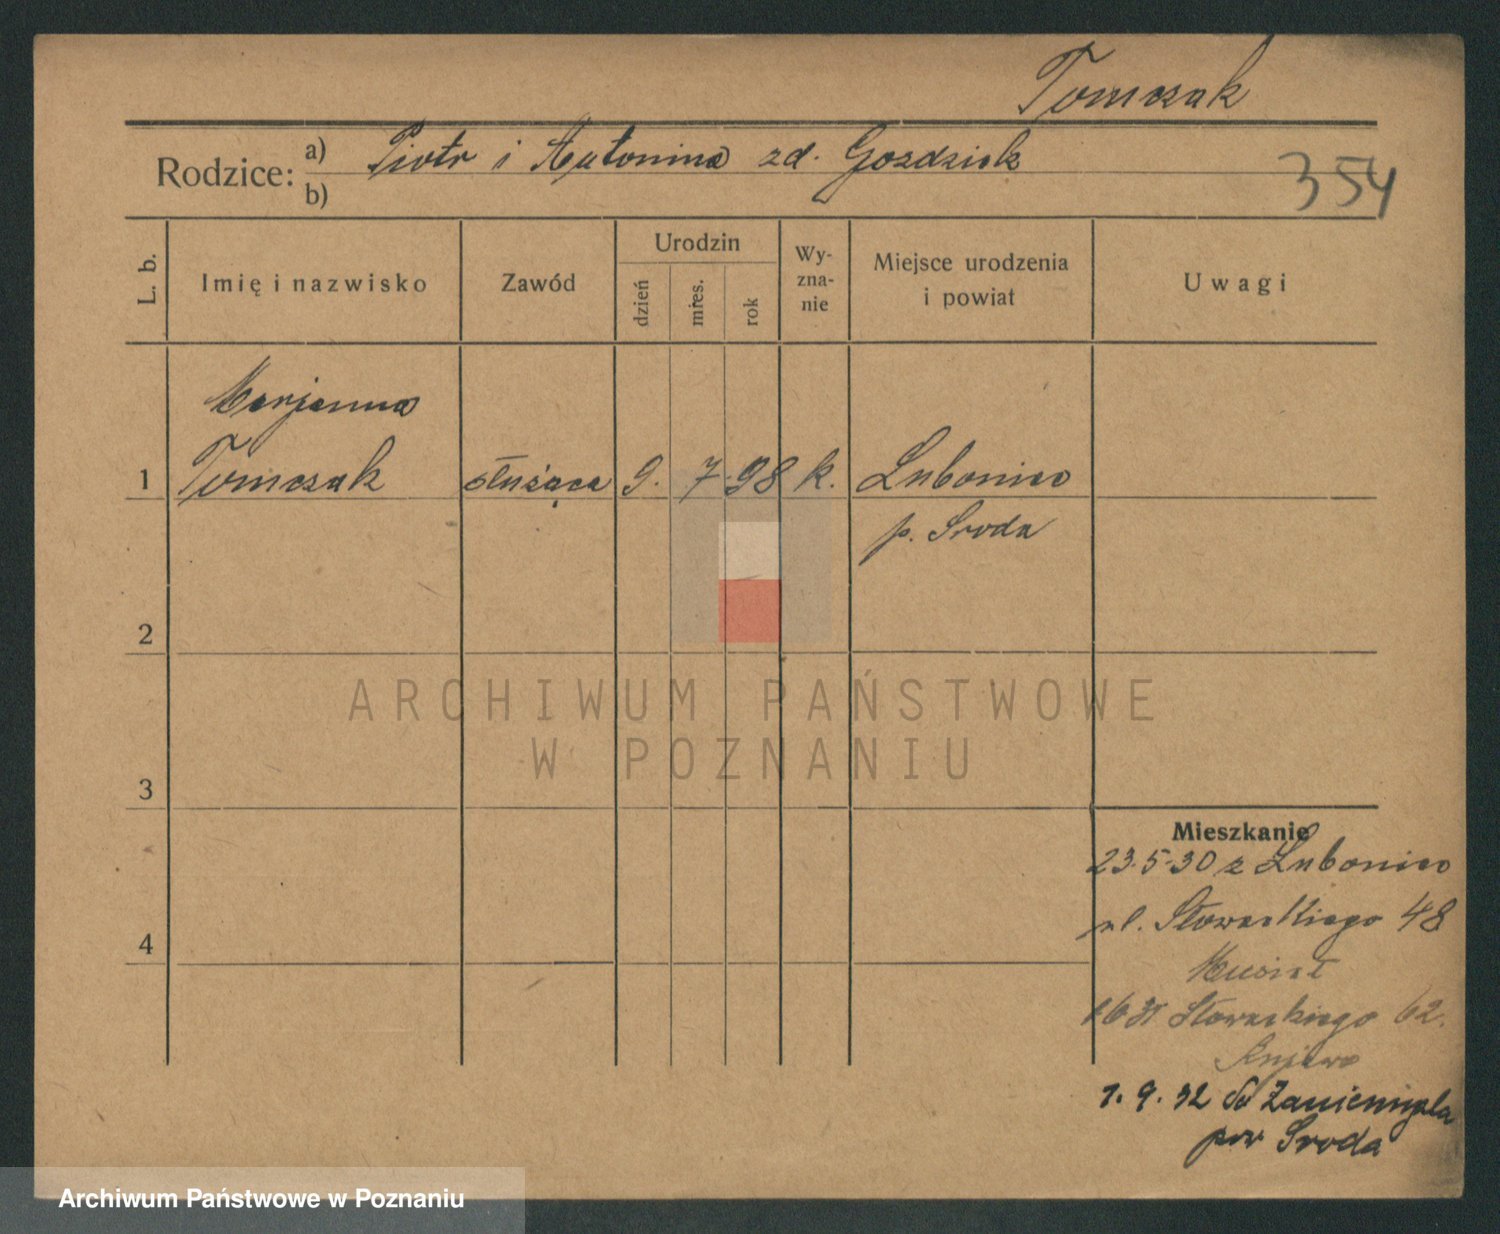 Tomczak
Rodzice: a) Piotr i Antonina zd. Gozdziek
b)
354
L. b.
Imię i nazwisko
Zawód
Urodzin
dzień
mies.
rok
Wy-
zna-
nie
Miejsce urodzenia
i powiat
Uwagi
Marjanna
1 Tomczak służąca 9. 7. 98 k. Luboniec
p. Sroda
2
ARCHIWUM PAŃSTWOWE
W POZNANIU
3
Mieszkanie
23.5.30 z Luboniec
ul. Słowackiego 48
4
Słowackiego 62.
1. 9. 32 do Zaniemyśla
pow Sroda
Archiwum Państwowe w Poznaniu